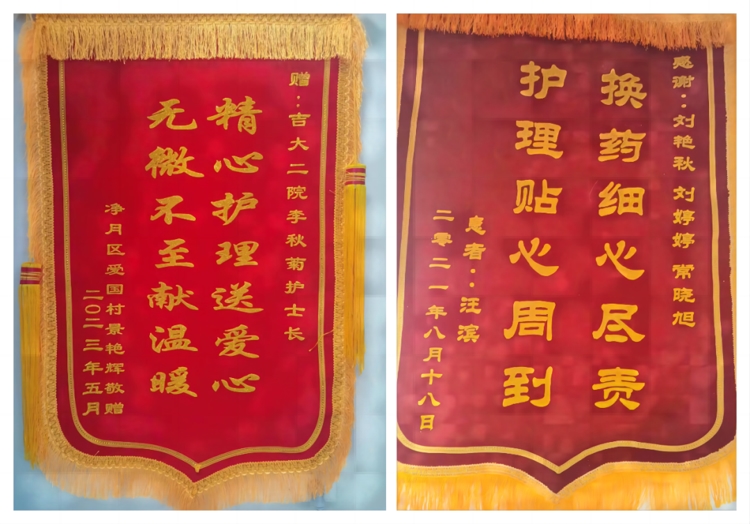 赠：吉大二院李秋菊护士长
精心护理送爱心
无微不至献温暖
净月区爱国村景艳辉敬赠
二〇二三年五月
感谢：刘艳秋 刘婷婷 常晓旭
换药细心尽责
护理贴心周到
患者：汪滨
二零二一年八月十八日